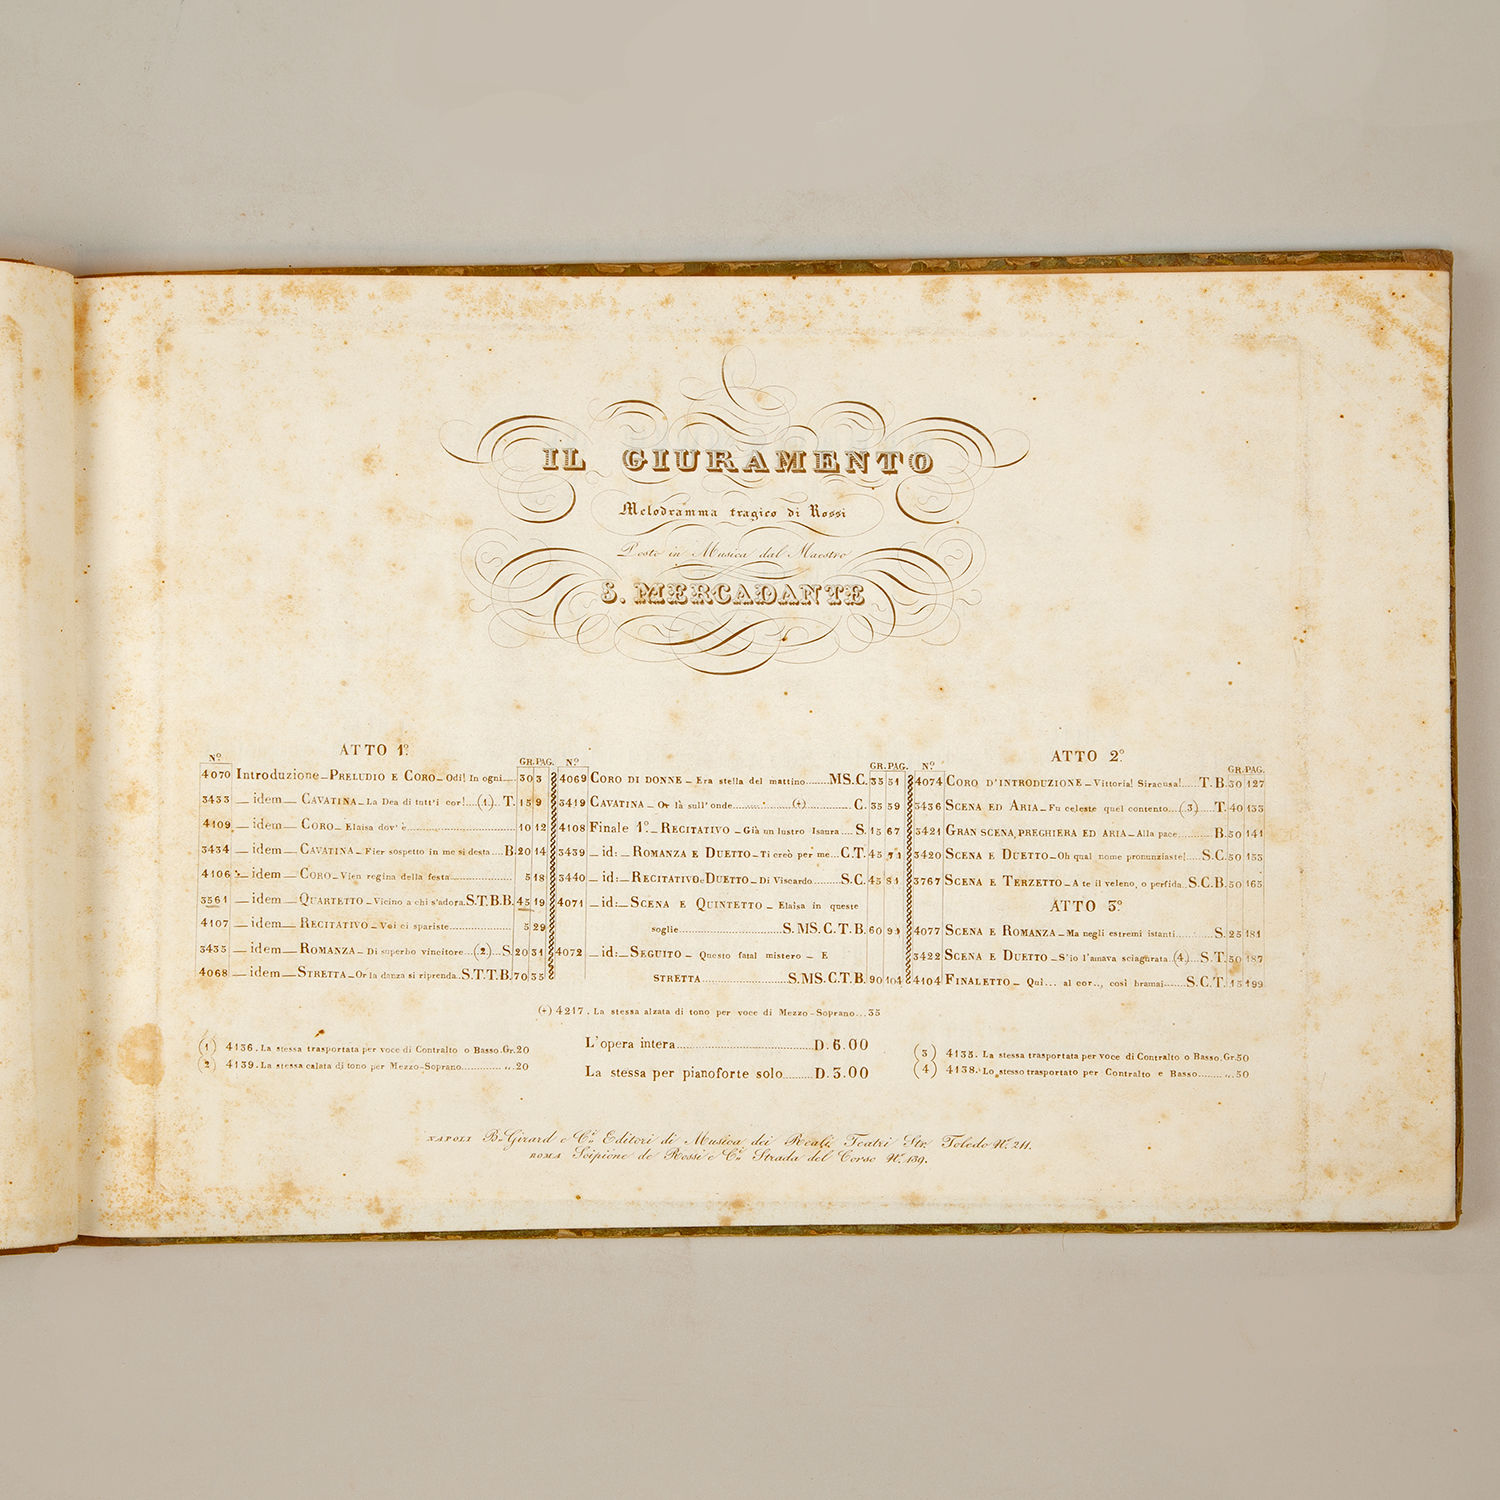 IL GIURAMENTO
Melodramma tragico di Rossi
Posto in Musica dal Maestro
S. MERCADANTE
ATTO 1º.
Nº. GR. PAG.
4070 Introduzione _ PRELUDIO E CORO _ Odi! In ogni.... 30 3
3433 _ idem _ CAVATINA _ La Dea di tutt'i cor!....(1).. T. 15 9
4109 _ idem _ CORO _ Elaisa dov' è.............................. 10 12
3434 _ idem _ CAVATINA _ Fier sospetto in me si desta.... B. 20 14
4106 _ idem _ CORO _ Vien regina della festa................ 5 18
3561 _ idem _ QUARTETTO _ Vicino a chi s'adora. S.T.B.B. 45 19
4107 _ idem _ RECITATIVO _ Voi ci spariste................. 5 29
3435 _ idem _ ROMANZA _ Di superbo vincitore...(2)... S. 20 31
4068 _ idem _ STRETTA _ Or la danza si riprenda.. S.T.T.B. 70 35
Nº. GR. PAG.
4069 CORO DI DONNE _ Era stella del mattino....... MS.C. 35 51
3419 CAVATINA _ Or là sull' onde.............(+)............ C. 35 59
4108 Finale 1º. _ RECITATIVO _ Già un lustro Isaura.... S. 15 67
3439 _ id: _ ROMANZA E DUETTO _ Ti creò per me... C.T. 45 71
3440 _ id: _ RECITATIVO e DUETTO _ Di Viscardo........ S.C. 45 81
4071 _ id: _ SCENA E QUINTETTO _ Elaisa in queste
soglie............................ S.MS.C.T.B. 60 91
4072 _ id: _ SEGUITO _ Questo fatal mistero _ E
STRETTA....................... S.MS.C.T.B. 90 104
ATTO 2º.
Nº. GR. PAG.
4074 CORO D'INTRODUZIONE _ Vittoria! Siracusa!..... T.B. 30 127
3436 SCENA ED ARIA _ Fu celeste quel contento...(3)... T. 40 133
3421 GRAN SCENA, PREGHIERA ED ARIA _ Alla pace.......... B. 50 141
3420 SCENA E DUETTO _ Oh qual nome pronunziaste!.... S.C. 50 153
3767 SCENA E TERZETTO _ A te il veleno, o perfida.. S.C.B. 50 165
ATTO 3º.
4077 SCENA E ROMANZA _ Ma negli estremi istanti......... S. 25 181
3422 SCENA E DUETTO _ S'io l'amava sciagurata.(4.)... S.T. 50 187
4104 FINALETTO _ Quì... al cor.., così bramai...... S.C.T. 15 199
(+) 4217. La stessa alzata di tono per voce di Mezzo-Soprano... 35
(1) 4136. La stessa trasportata per voce di Contralto o Basso. Gr. 20
(2) 4139. La stessa calata di tono per Mezzo-Soprano............ ,, 20
L'opera intera.................................. D. 6.00
La stessa per pianoforte solo......... D. 3.00
(3) 4135. La stessa trasportata per voce di Contralto o Basso. Gr. 50
(4) 4138. Lo stesso trasportato per Contralto e Basso......... ,, 50
NAPOLI B. Girard e Cº. Editori di Musica dei Reali Teatri Str. Toledo Nº. 211.
ROMA Scipione de Rossi e Cº. Strada del Corso Nº. 139.